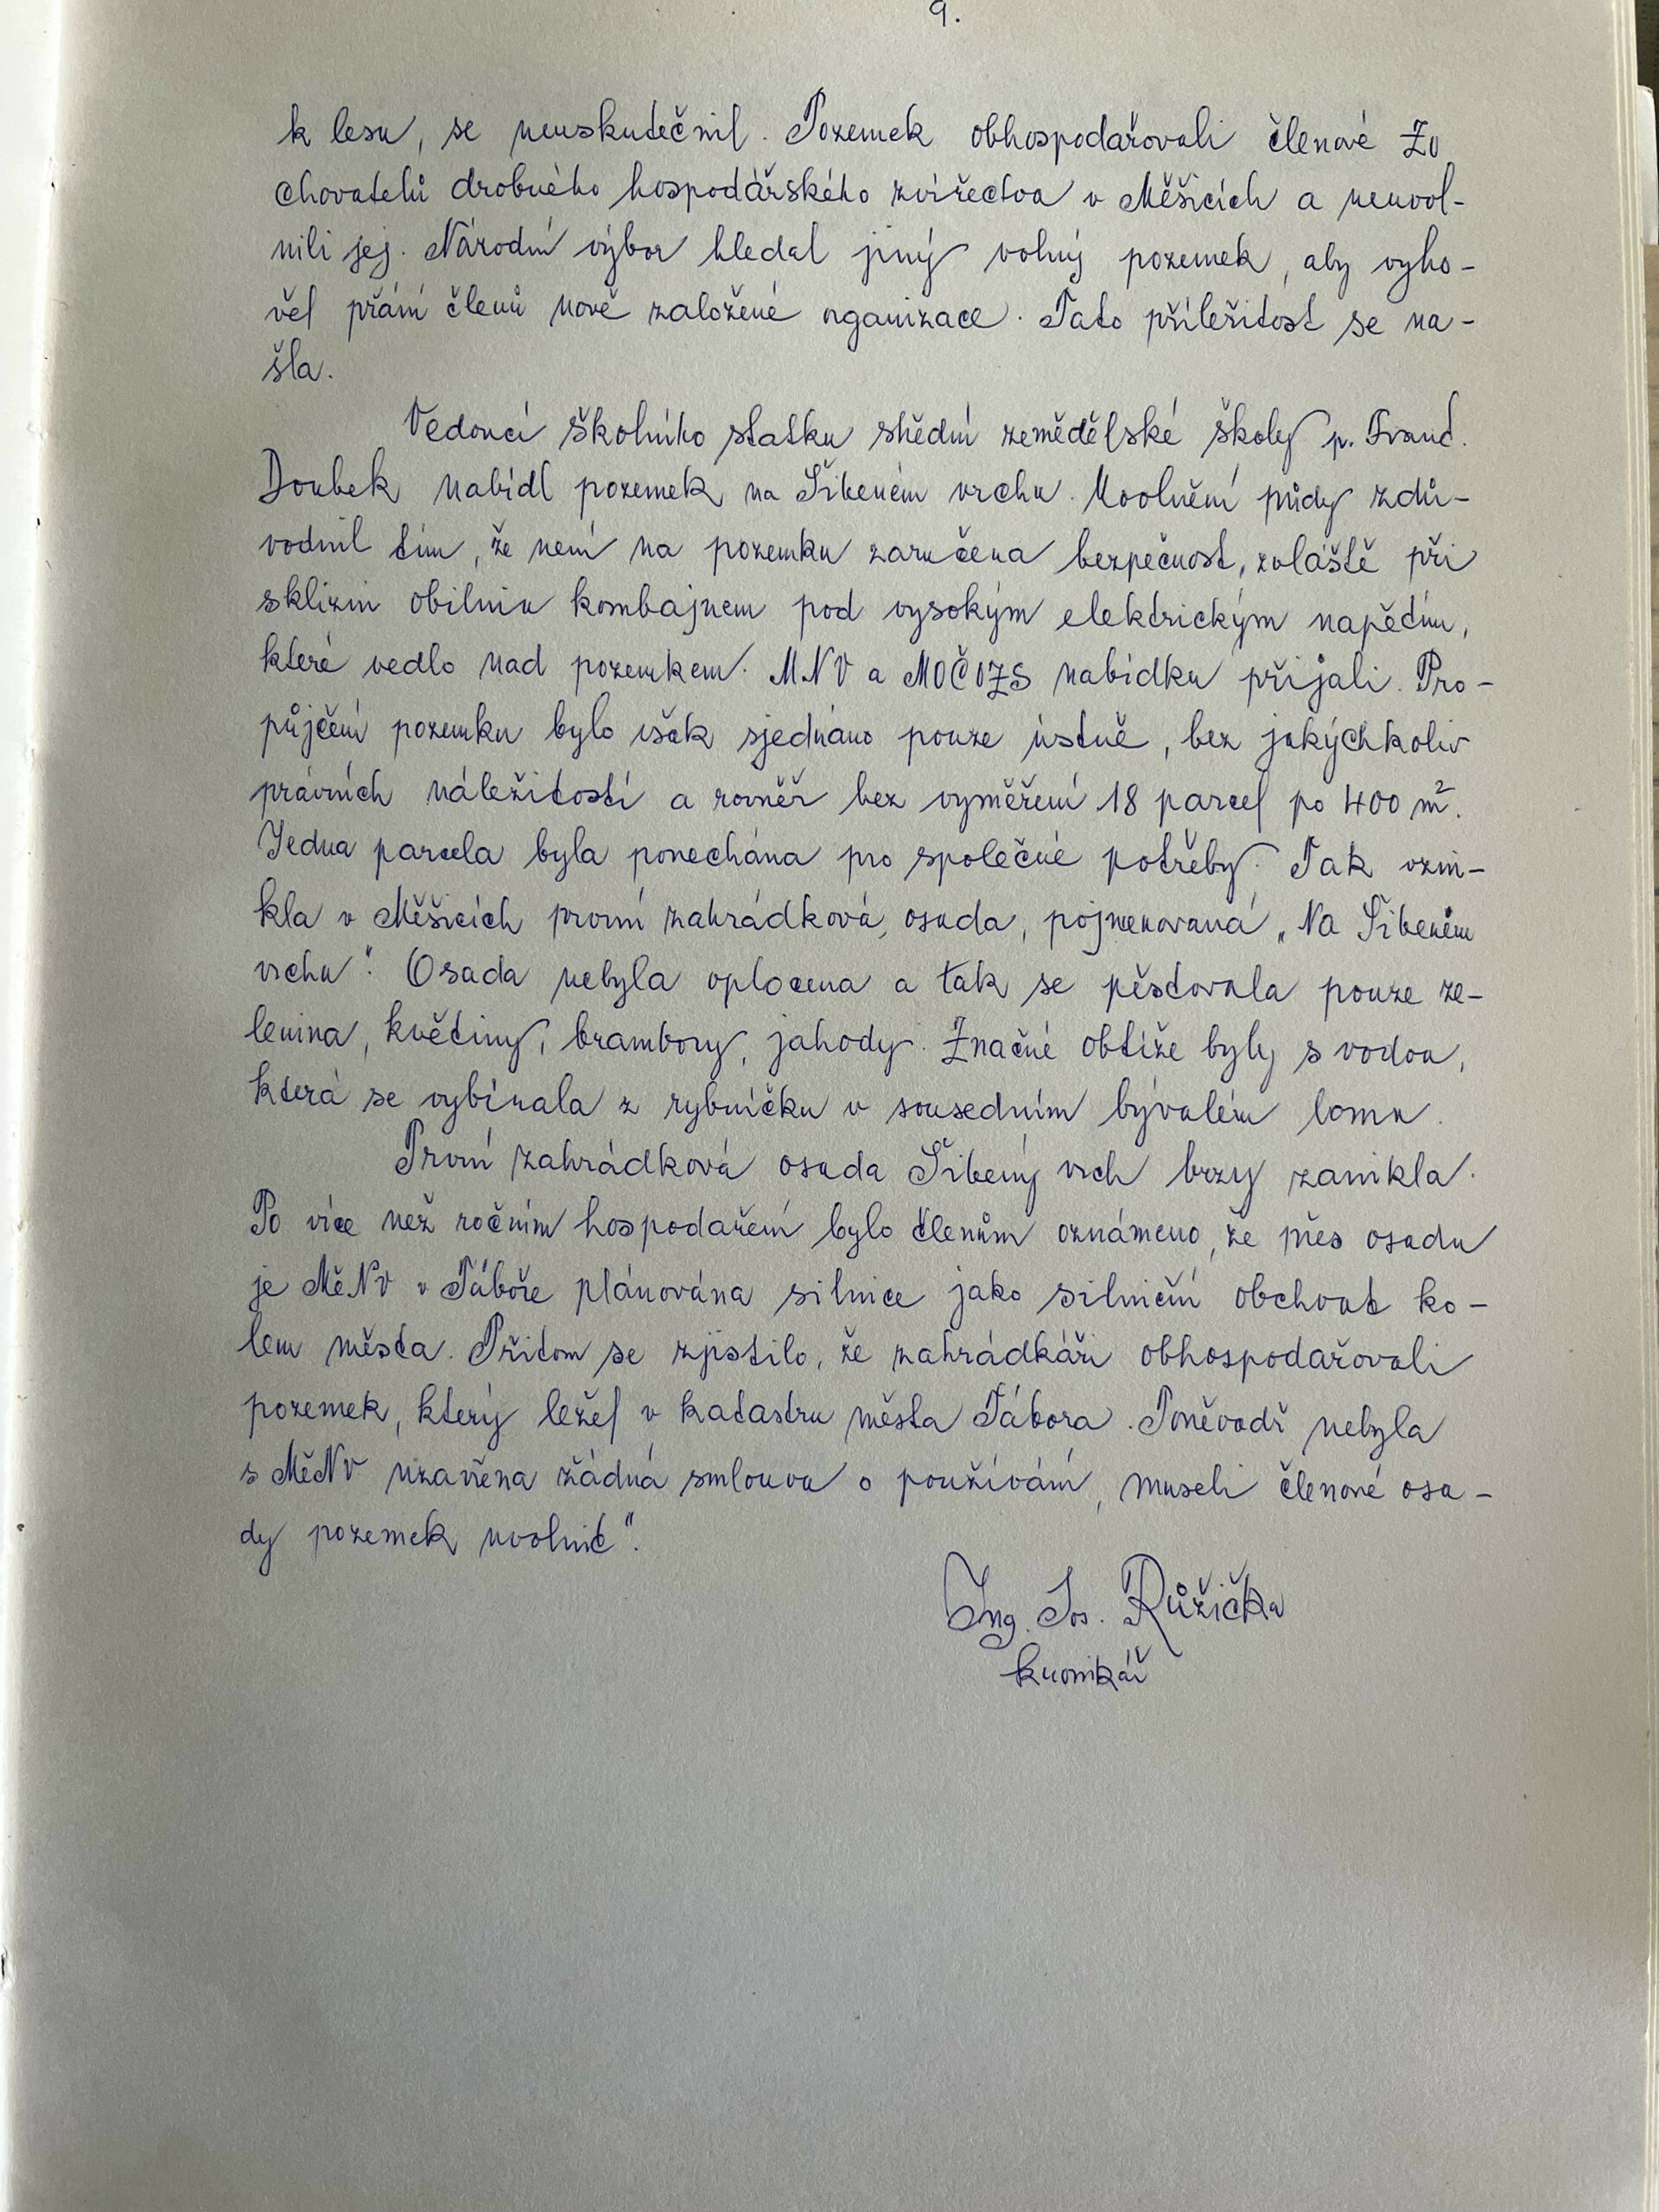 9.
k lesu, se neuskutečnil. Pozemek obhospodařovali členové ZO
chovatelů drobného hospodářského zvířectva v Měšicích a neuvol-
nili jej. Národní výbor hledal jiný volný pozemek, aby vyho-
věl přání členů nově založené organizace. Tato příležitost se na-
šla.
Vedoucí školního statku střední zemědělské školy p. Frant.
Doubek nabídl pozemek na Šibeném vrchu. Uvolnění půdy zdů-
vodnil tím, že není na pozemku zaručena bezpečnost, zvláště při
sklizni obilnin kombajnem pod vysokým elektrickým napětím,
které vedlo nad pozemkem. MNV a MOČOZS nabídku přijali. Pro-
půjčení pozemku bylo však sjednáno pouze ústně, bez jakýchkoliv
právních náležitostí a rovněž bez vyměření 18 parcel po 400 m².
Jedna parcela byla ponechána pro společné potřeby. Tak vzni-
kla v Měšicích první zahrádková osada, pojmenovaná „Na Šibeném
vrchu". Osada nebyla oplocena a tak se pěstovala pouze ze-
lenina, květiny, brambory, jahody. Značné obtíže byly s vodou,
která se vybírala z rybníčku v sousedním bývalém lomu.
První zahrádková osada Šibený vrch brzy zanikla.
Po více než ročním hospodaření bylo členům oznámeno, že přes osadu
je MěNV v Táboře plánována silnice jako silniční obchvat ko-
lem města. Přitom se zjistilo, že zahrádkáři obhospodařovali
pozemek, který ležel v katastru města Tábora. Poněvadž nebyla
s MěNV uzavřena žádná smlouva o používání, museli členové osa-
dy pozemek uvolnit".
Ing. Jos. Růžička
kronikář